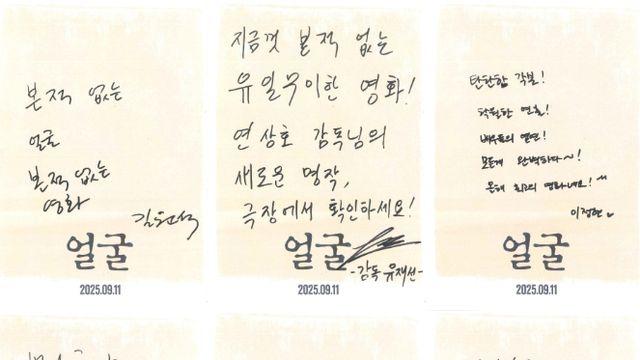 본 적 없는
얼굴
본 적 없는
영화
얼굴
2025.09.11
지금껏 본 적 없는
유일무이한 영화!
연상호 감독님의
새로운 명작,
극장에서 확인하세요!
얼굴
-감독 유재선-
2025.09.11
탄탄한 각본!
탁월한 연출!
배우들의 열연!
모든게 완벽하다~!
올해 최고의 영화네요!
이정현
얼굴
2025.09.11